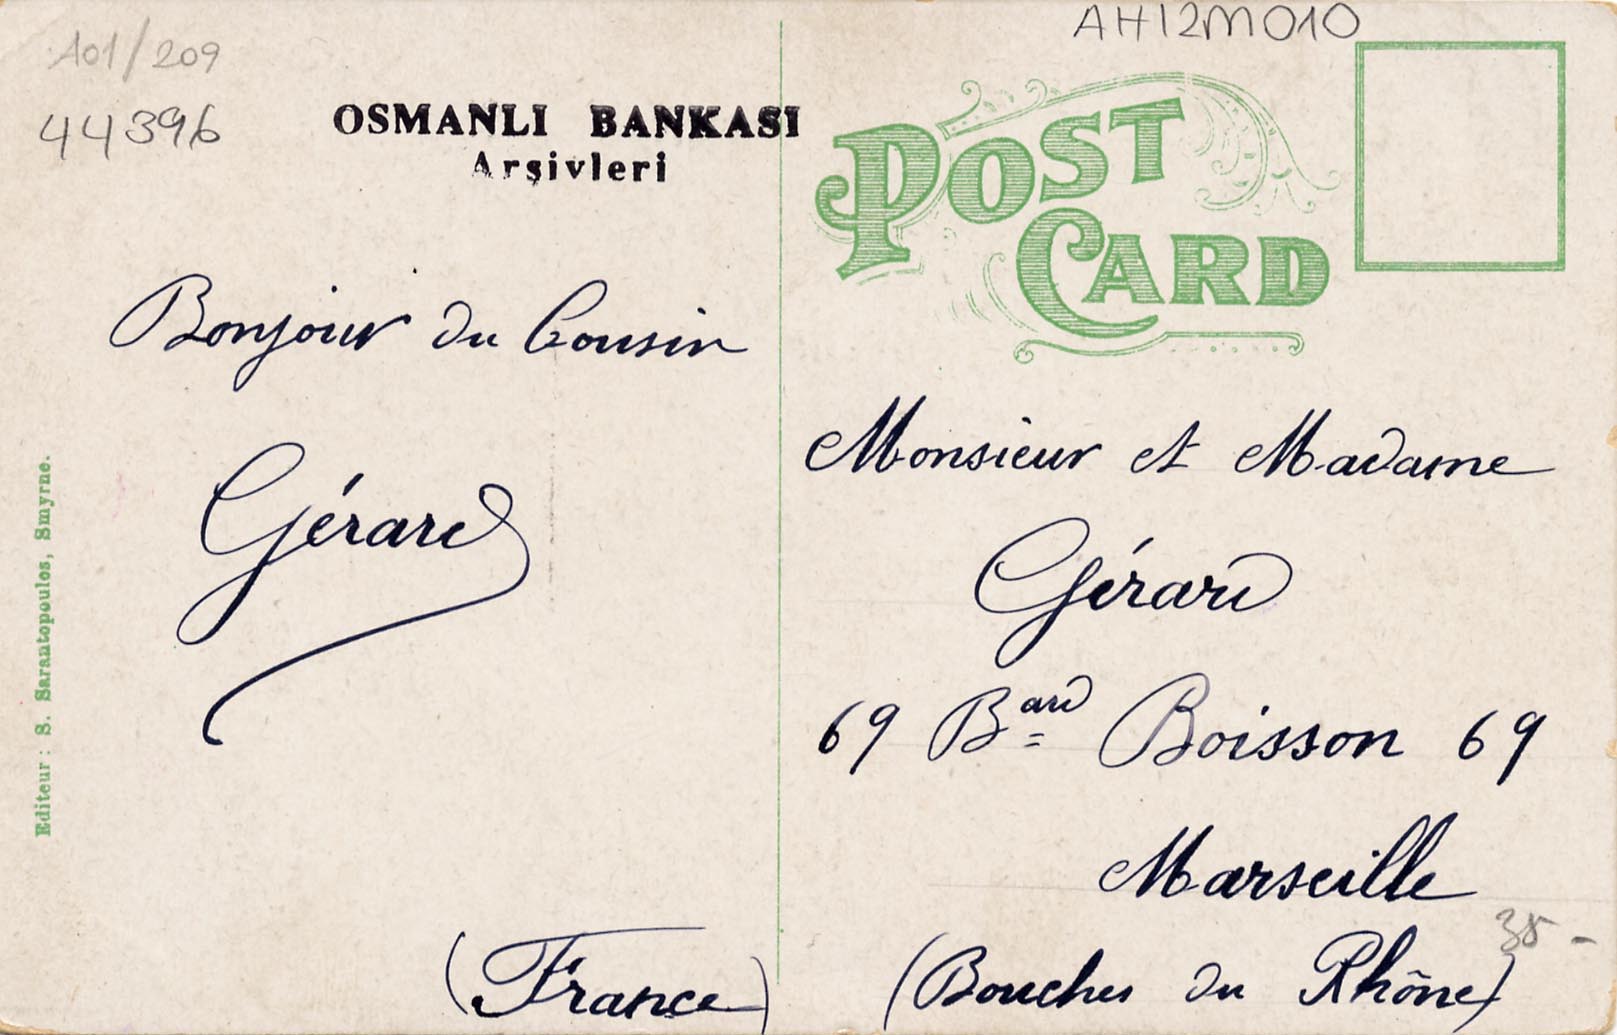 A01/209
44396
OSMANLI BANKASI
Arşivleri
Bonjour du Cousin
Gérard
(France)
Editeur : S. Sarantopoulos, Smyrne.
AH12M010
POST
CARD
Monsieur et Madame
Gérard
69 Bard Boisson 69
Marseille
38 -
(Bouches du Rhône)